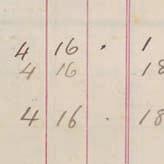 4 16 . 1
4 16 18
4 16 . 18